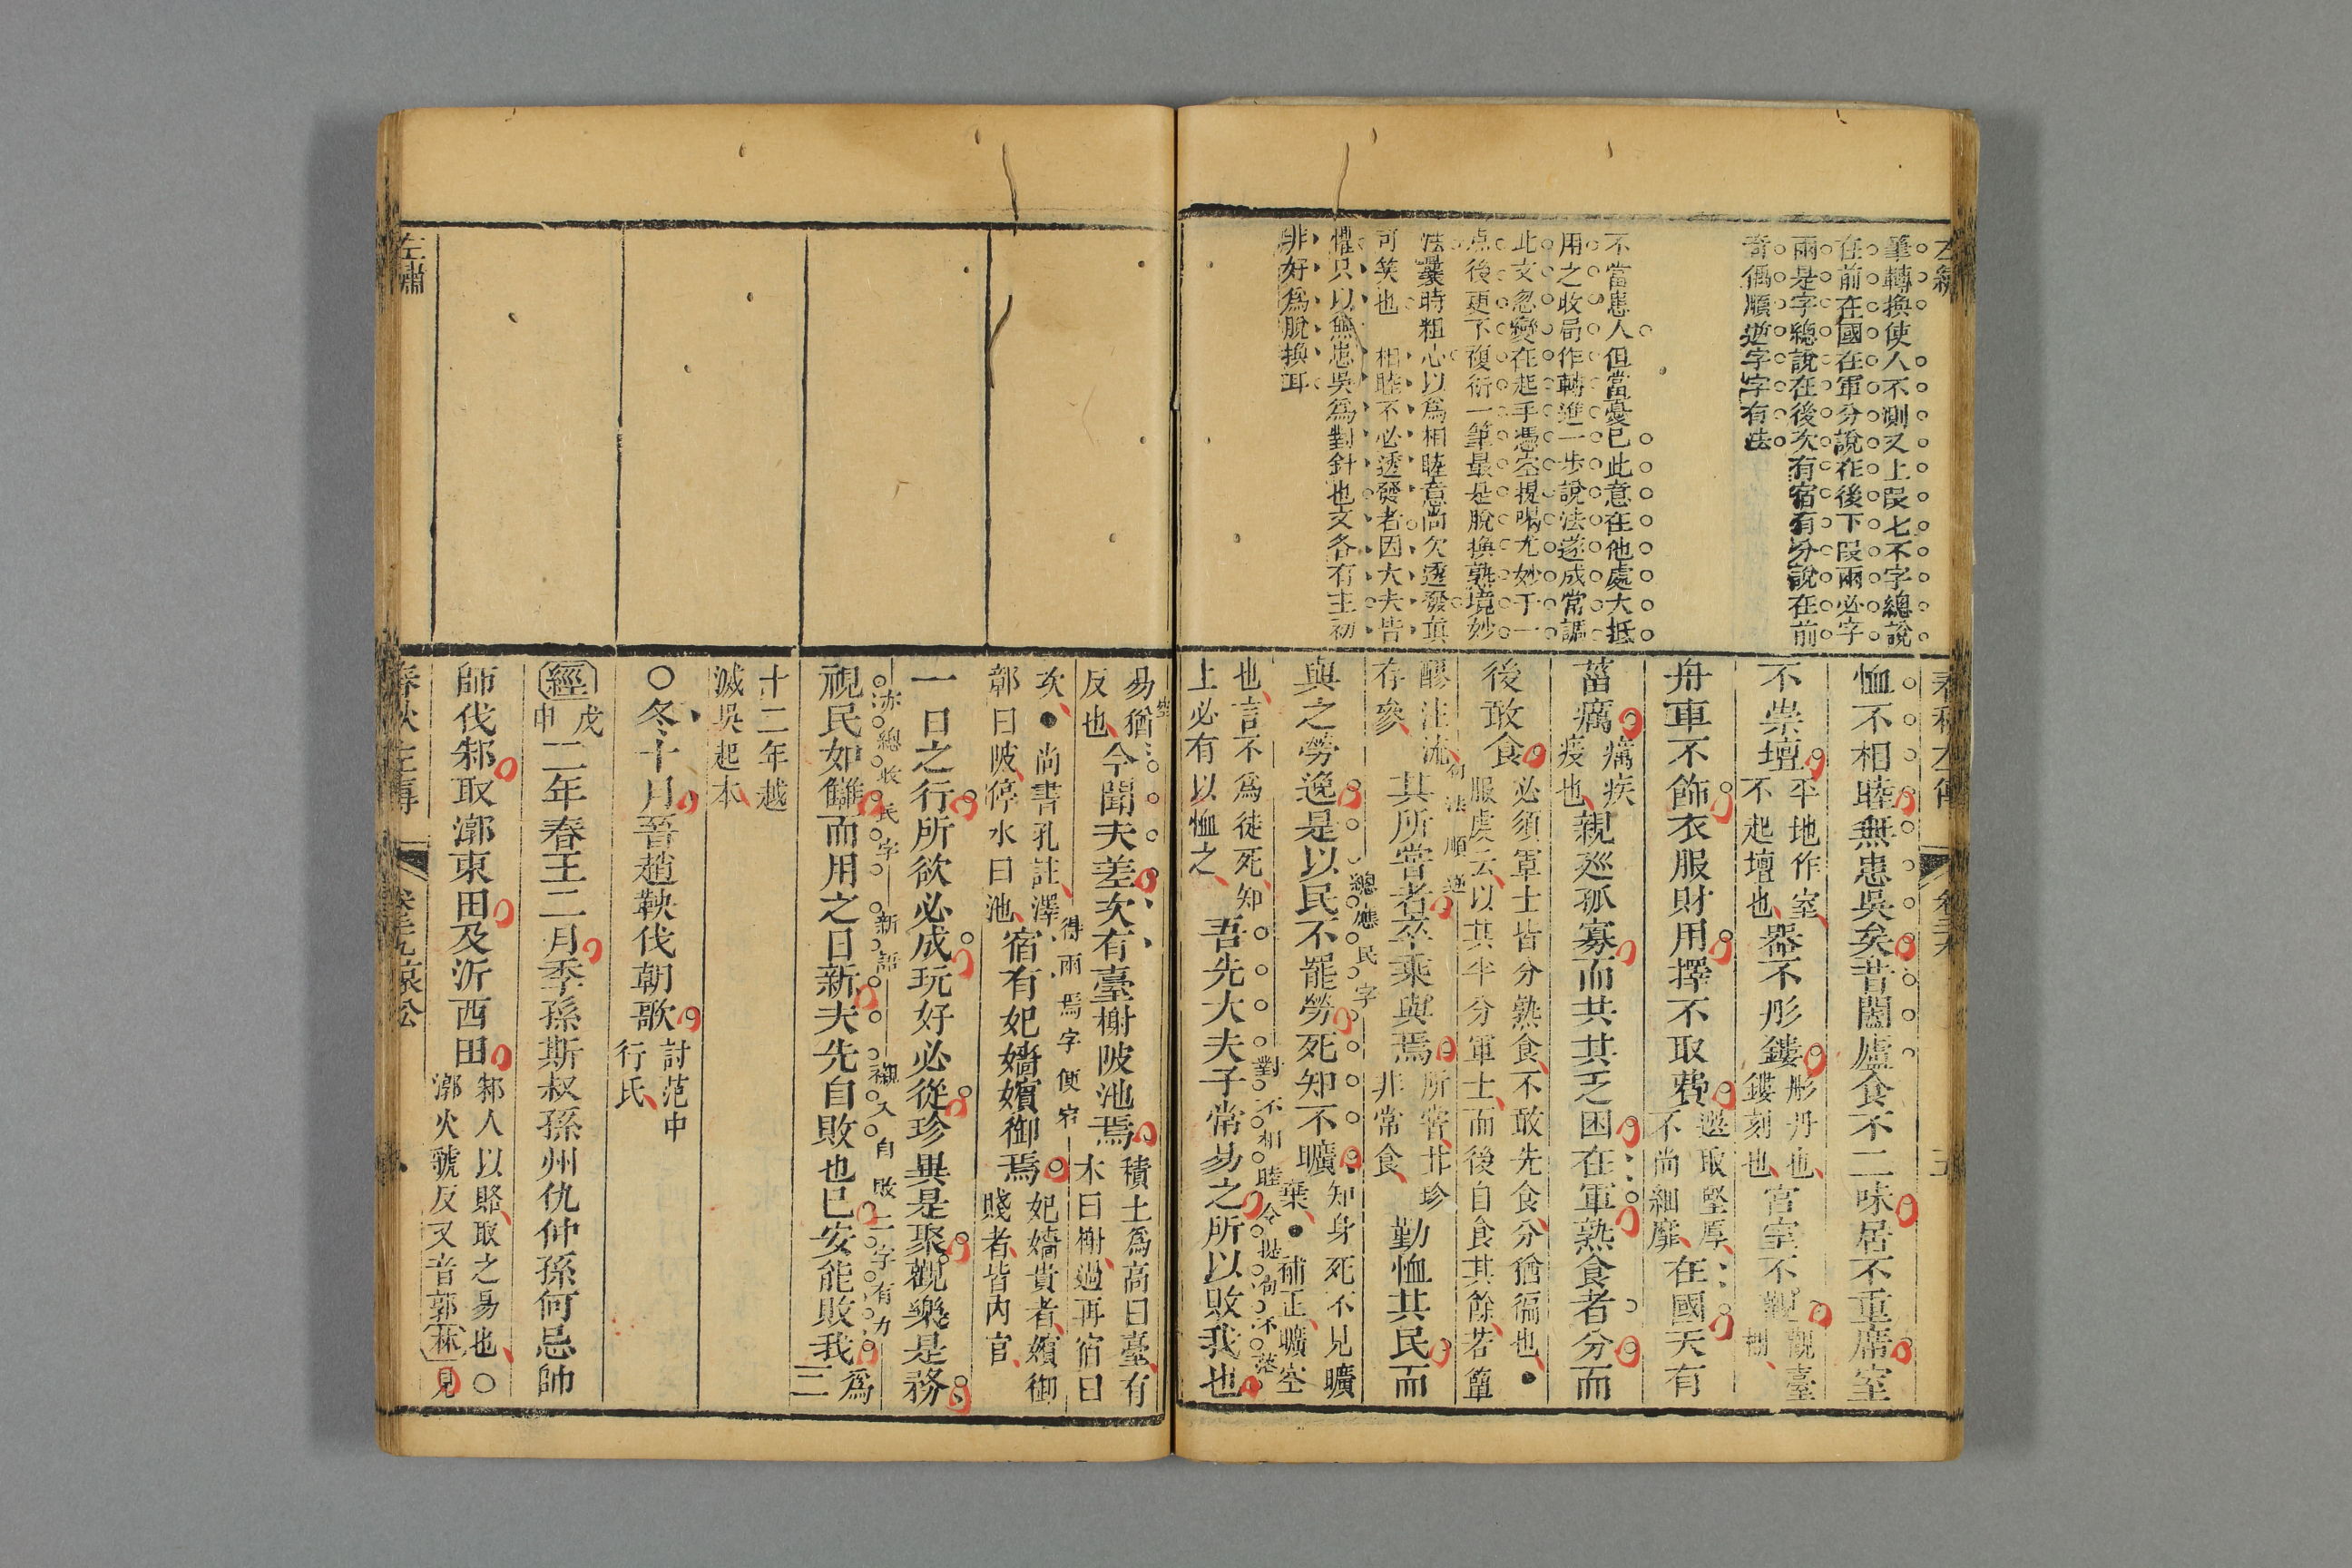 筆轉換使人不測又上段七不字總說
在前在國在軍分說在後下段兩必字
兩是字總說在後次有宿有分說在前
奇偶順逆字字有法
不當患人但當憂已此意在他處大抵
用之收局作轉進一步說法遂成常調
此文忽變在起手憑空提喝尤妙于一
点後更下復衍一筆最是脫換熟境妙
法曩時粗心以為相睦意尚欠透發真
可笑也　相睦不必透發者因大夫皆
懼只以無患吳為對針也文各有主初
非好為脫換耳
恤不相睦無患吳矣昔闔廬食不二味居不重席室
不崇壇平地作室、不起壇也、器不彤鏤彤丹也、鏤刻也、宮室不觀觀臺榭、
舟車不飾衣服財用擇不取費選取堅厚、不尚細靡、在國天有
菑癘癘疾疫也、親巡孤寡而共其乏困在軍熟食者分而
後敢食必須軍士皆分熟食、不敢先食、分猶徧也、●服虔云、以其半分軍士、而後自食其餘、若簞
醪注流、存參、其所嘗者卒乘與焉所嘗、非常食、甘珍非常食、勤恤其民而
句法順逆
與之勞逸是以民不罷勞死知不曠知身死不見曠棄、●補正、曠空
總應民字
也、言不為徒死、知上必有以恤之、吾先大夫子常易之所以敗我也
對不相睦
易猶反也、今聞夫差次有臺榭陂池焉積土為高曰臺、有木曰榭、過再宿曰
次、●尚書孔註、澤鄣曰陂、停水曰池、宿有妃嬙嬪御焉妃嬙貴者、嬪御賤者、皆內官、
得雨焉字便宕
一日之行所欲必成玩好必從珍異是聚觀樂是務
視民如讎而用之日新夫先自敗也已安能敗我為二
亦總收民字　新語　襯入自敗二字有力
十二年越滅吳起本、
○冬十月晉趙鞅伐朝歌討范中行氏、
經戊申二年春王二月季孫斯叔孫州仇仲孫何忌帥
師伐邾取漷東田及沂西田邾人以賂、取之易也、○漷火虢反又音郭林見
左繡
春秋左傳